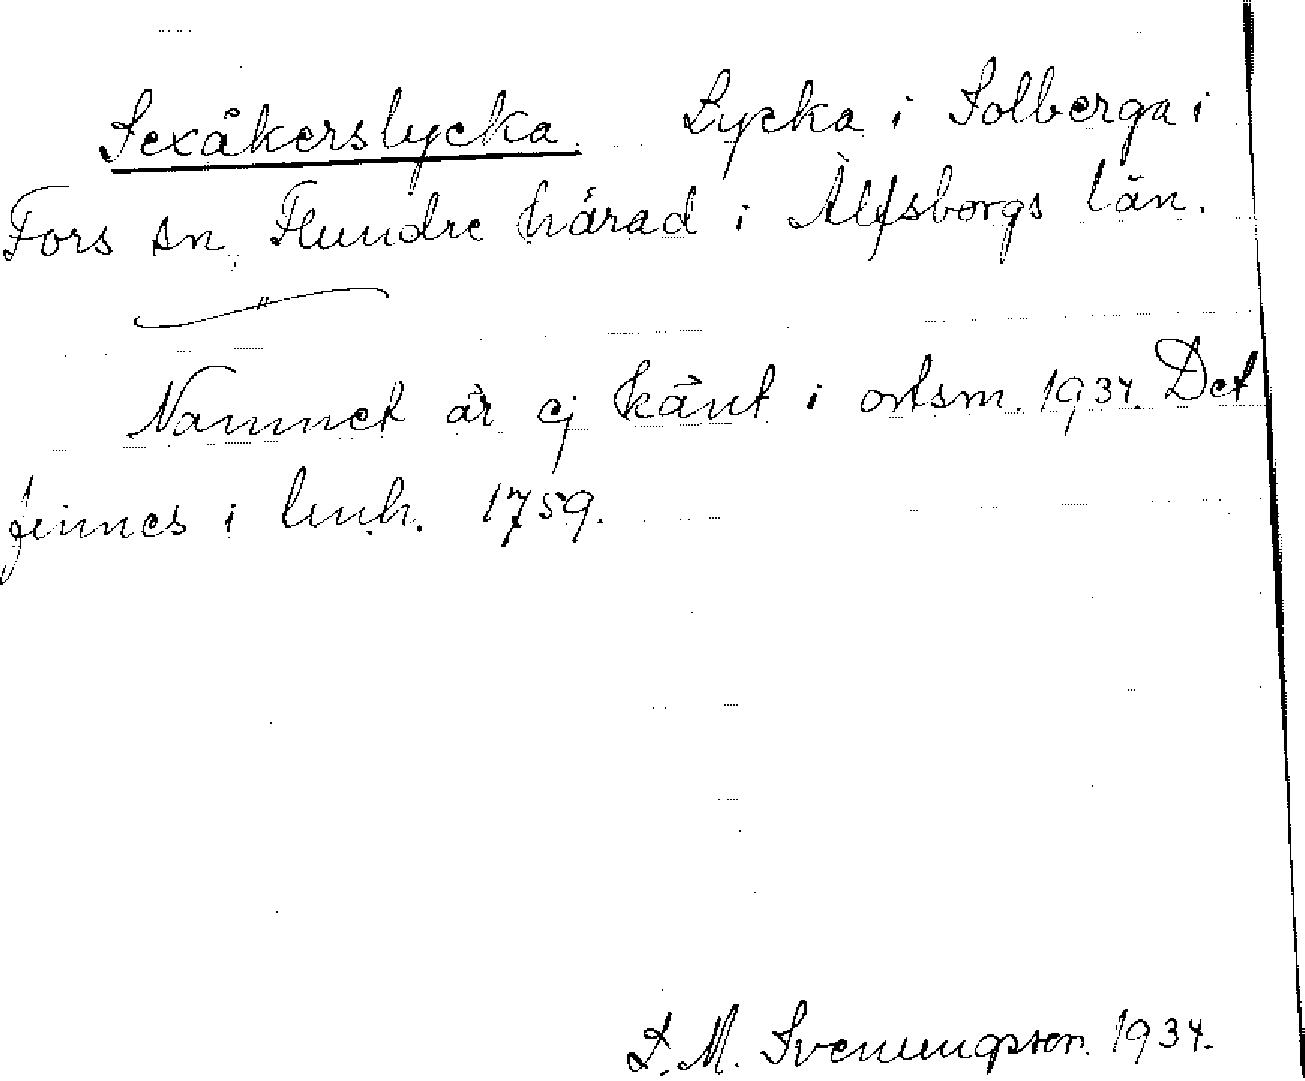 Sexåkerslycka. Lycka i Solberga i
Fors sn, Flundre härad i Älfsborgs län.
Namnet är ej känt i ortsm. 1934. Det
finnes i lmh. 1759.
S. M. Svenungsson. 1934.